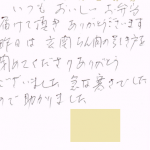 いつも おいしい お弁当
届けて頂き ありがとうございます
昨日は 玄関
閉めてくださりありがとう
ございました 急な寒さでした
ので 助かりました